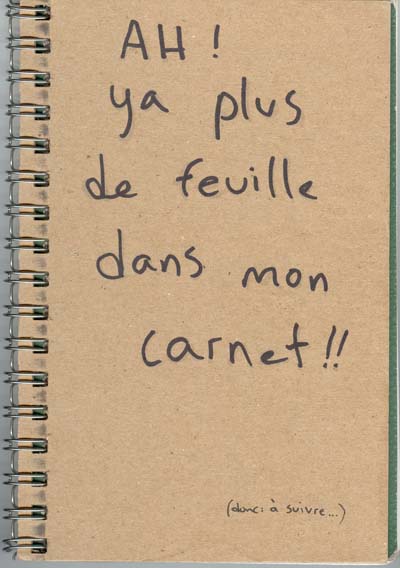 AH !
ya plus
de feuille
dans mon
carnet !!
(donc : à suivre...)